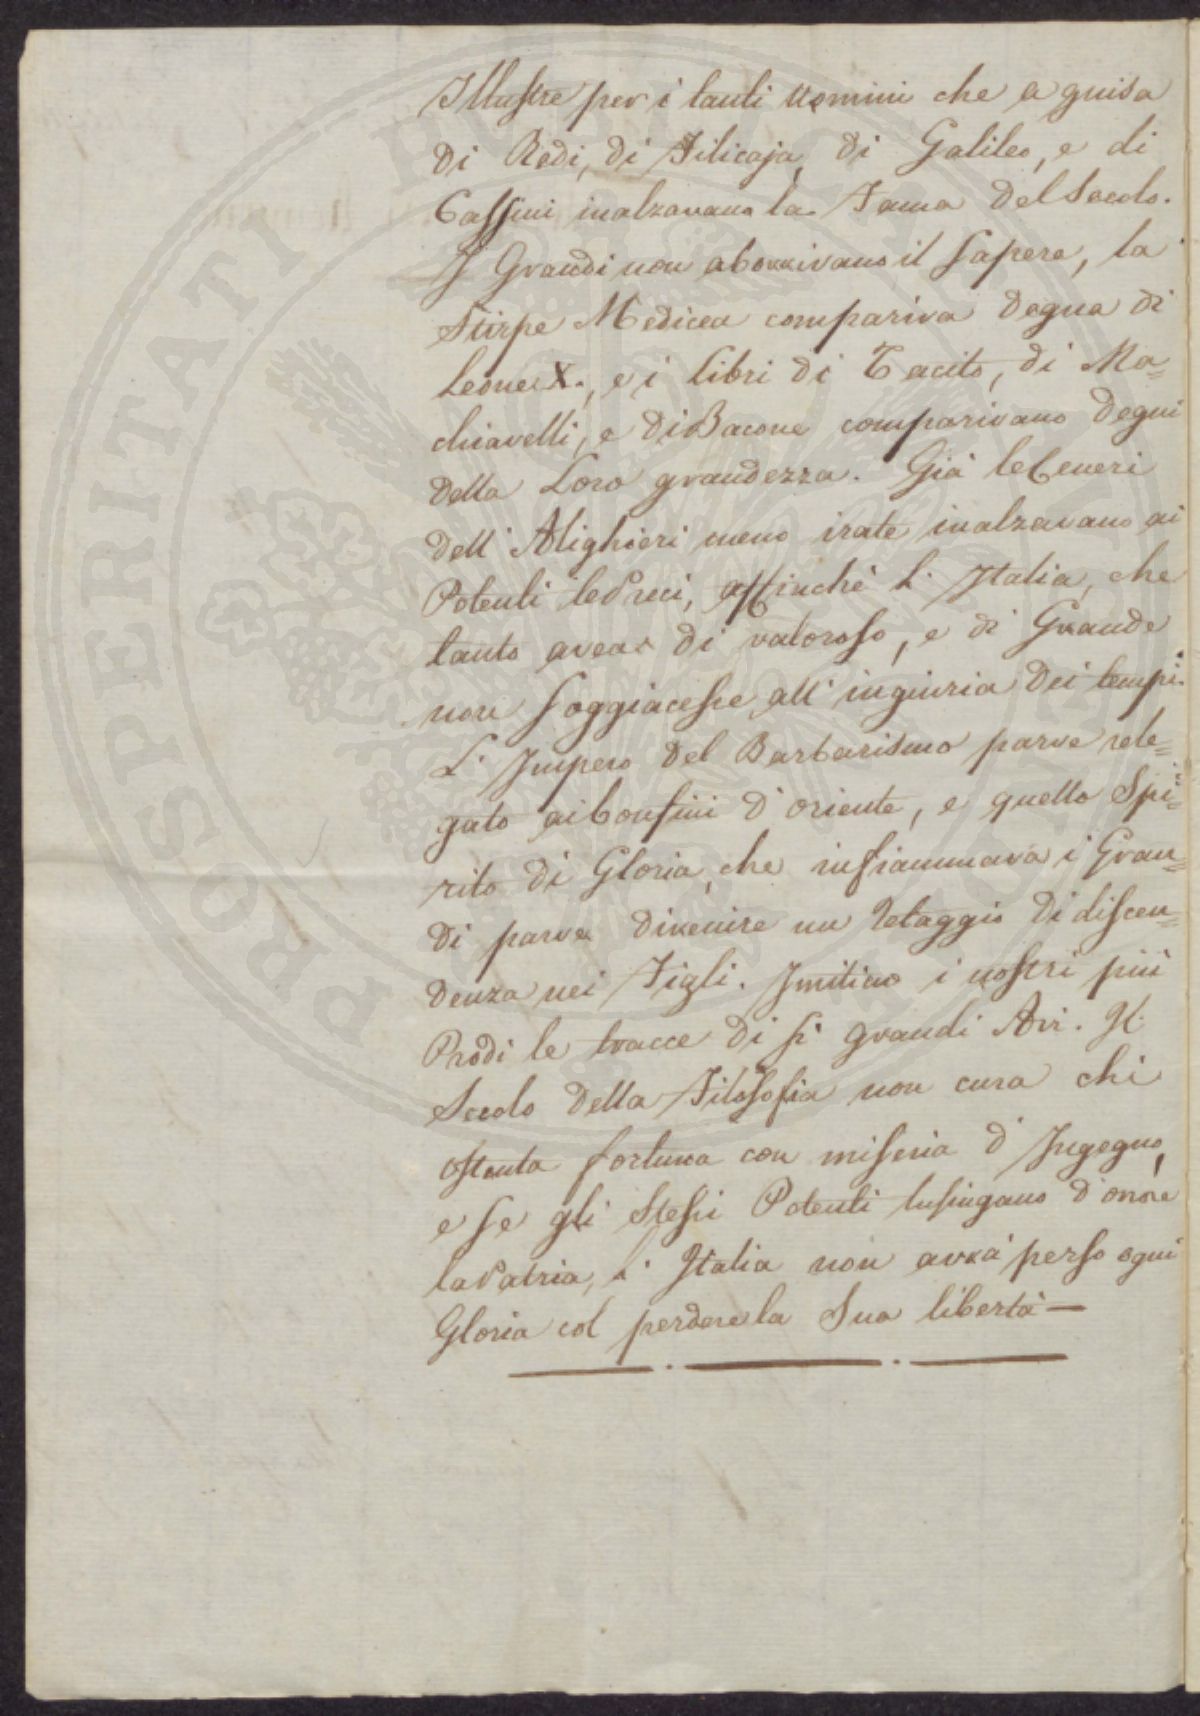 Illustre per i tanti Uomini che a guisa
di Redi, di Filicaja, di Galileo, e di
Cassini inalzavano la Fama del Secolo.
I Grandi non aborrivano il Sapere, la
Stirpe Medicea compariva degna di
Leone X., e i libri di Tacito, di Ma=
chiavelli, e di Bacone comparivano degni
della Loro grandezza. Già le Ceneri
dell'Alighieri meno irate inalzavano ai
Potenti le Preci, affinchè l'Italia, che
tanto avea di valoroso, e di Grande
non soggiacesse all'ingiuria dei tempi.
L'Impero del Barbarismo parve rele=
gato ai Confini d'oriente, e quello Spi=
rito di Gloria, che infiammava i Gran=
di parve divenire un Retaggio di discen=
denza nei Figli. Imitino i nostri più
Prodi le tracce di sì grandi Avi. Il
Secolo della Filosofia non cura chi
ostenta fortuna con miseria d'Ingegno,
e se gli Stessi Potenti lusingano d'onore
la Patria, l'Italia non avrà perso ogni
Gloria col perdere la Sua libertà —
PROSPERITATI PUBLICAE